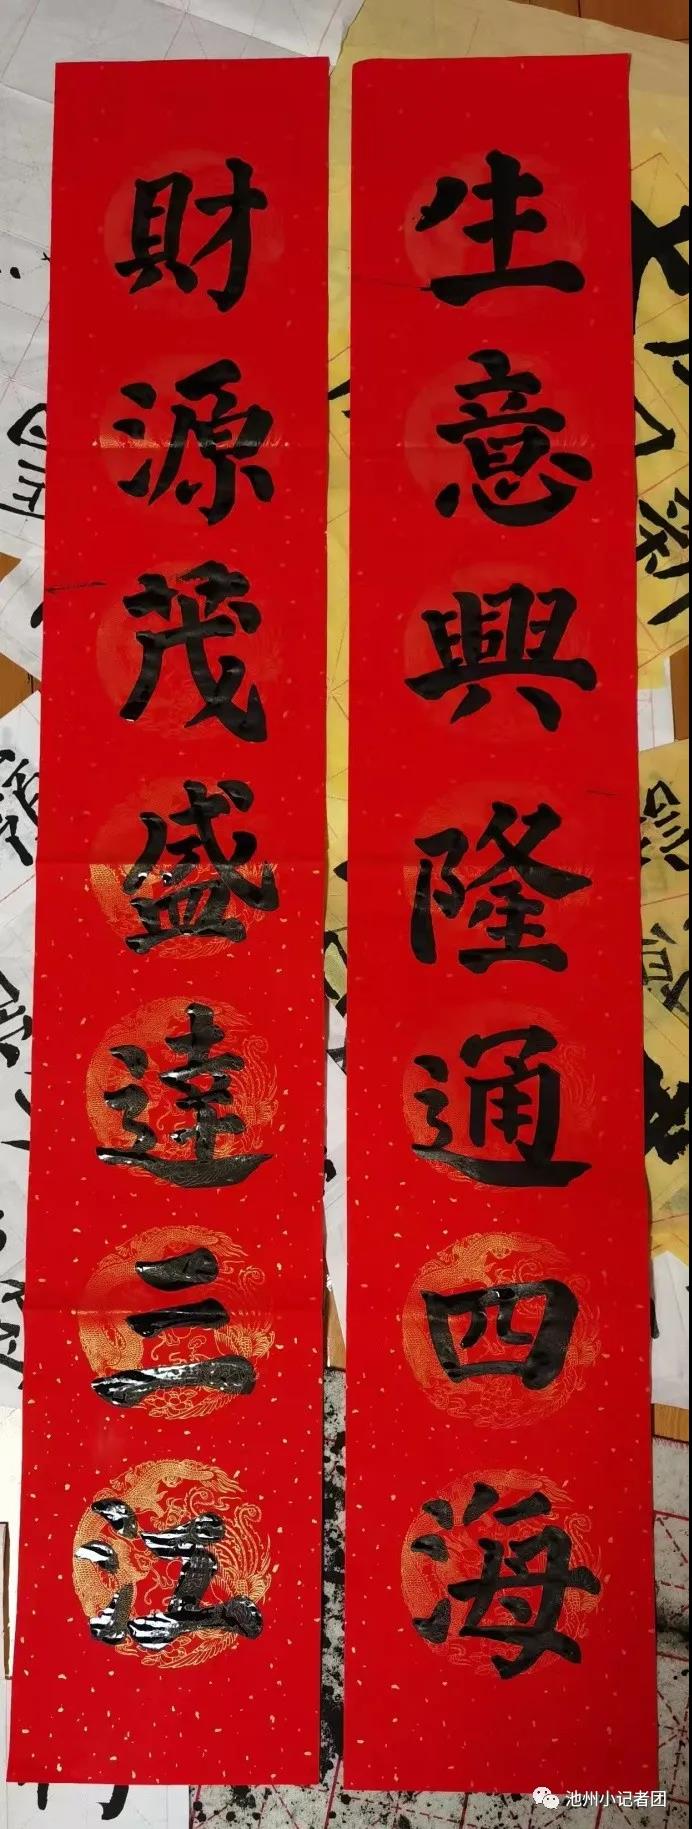 生意興隆通四海
財源茂盛達三江
池州小记者团